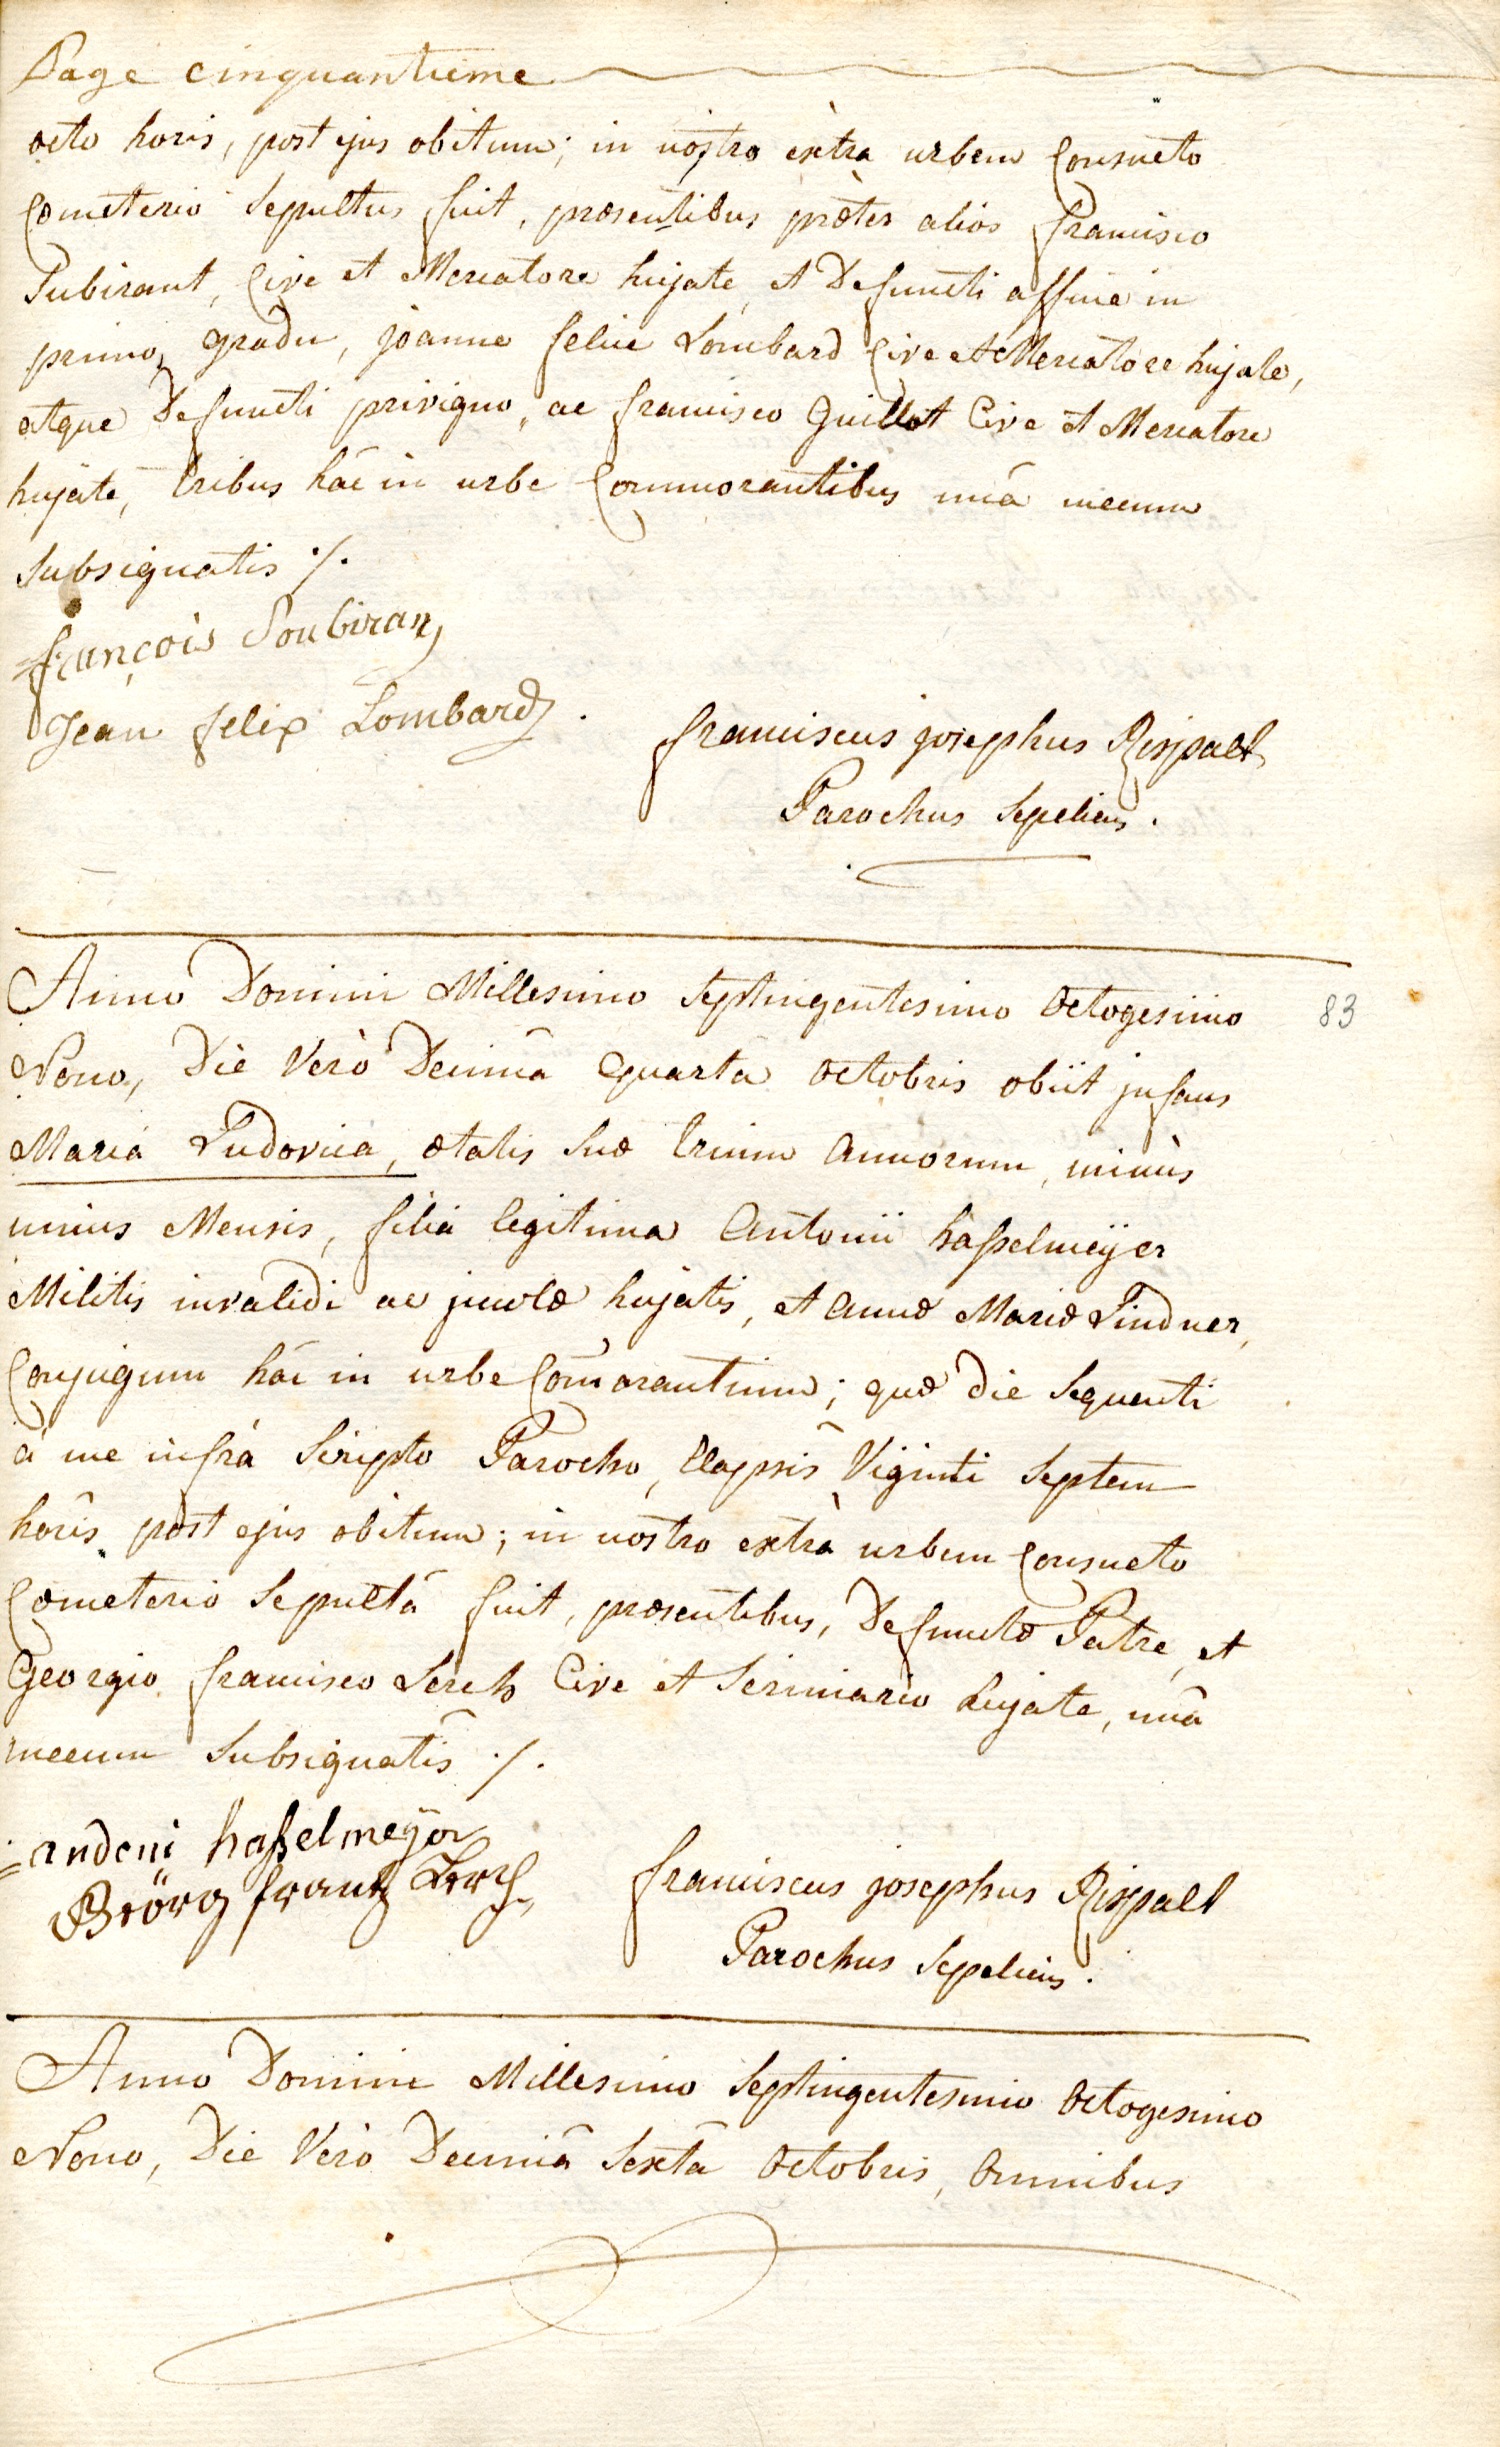 Page cinquantieme
octo horis, post ejus obitum; in nostro extra urbem Consueto
Cœmeterio Sepultus fuit, præsentibus præter alios francisco
Subirant, Cive et Mercatore hujate, et Defuncti affine in
primo gradu, joanne felice Lombard Cive et Mercatore hujate,
atque Defuncti privigno, ac francisco Guillot Cive et Mercatore
hujate, tribus hâc in urbe Commorantibus unâ mecum
subsignatis ./.
françois Soubiran
Jean felix Lombard.
franciscus josephus Rispalt
Parochus Sepeliens.
Anno Domini Millesimo Septingentesimo Octogesimo
83
Nono, Die Verò Decimâ Quartâ Octobris obiit jnfans
Maria Ludovica, ætatis suæ trium annorum, minùs
unius Mensis, filia legitima Antonii haßelmeÿer
Militis invalidi ac jncolæ hujatis, et annæ Mariæ Lindner,
Conjugum hâc in urbe Com̄orantium; quæ die sequenti
à me infrà Scripto Parocho, Elapsis Viginti Septem
horis post ejus obitum; in nostro extrà urbem Consueto
Cœmeterio Sepulta fuit, præsentibus, Defunctæ Patre, et
Georgio francisco Lerch Cive et Scriniario hujate, unâ
mecum Subsignatis ./.
andoni haßelmeÿer
Geörg frantz Lerch
franciscus josephus Rispalt
Parochus Sepeliens.
Anno Domini Millesimo Septingentesimo Octogesimo
Nono, Die Verò Decimâ Sextâ Octobris, Omnibus